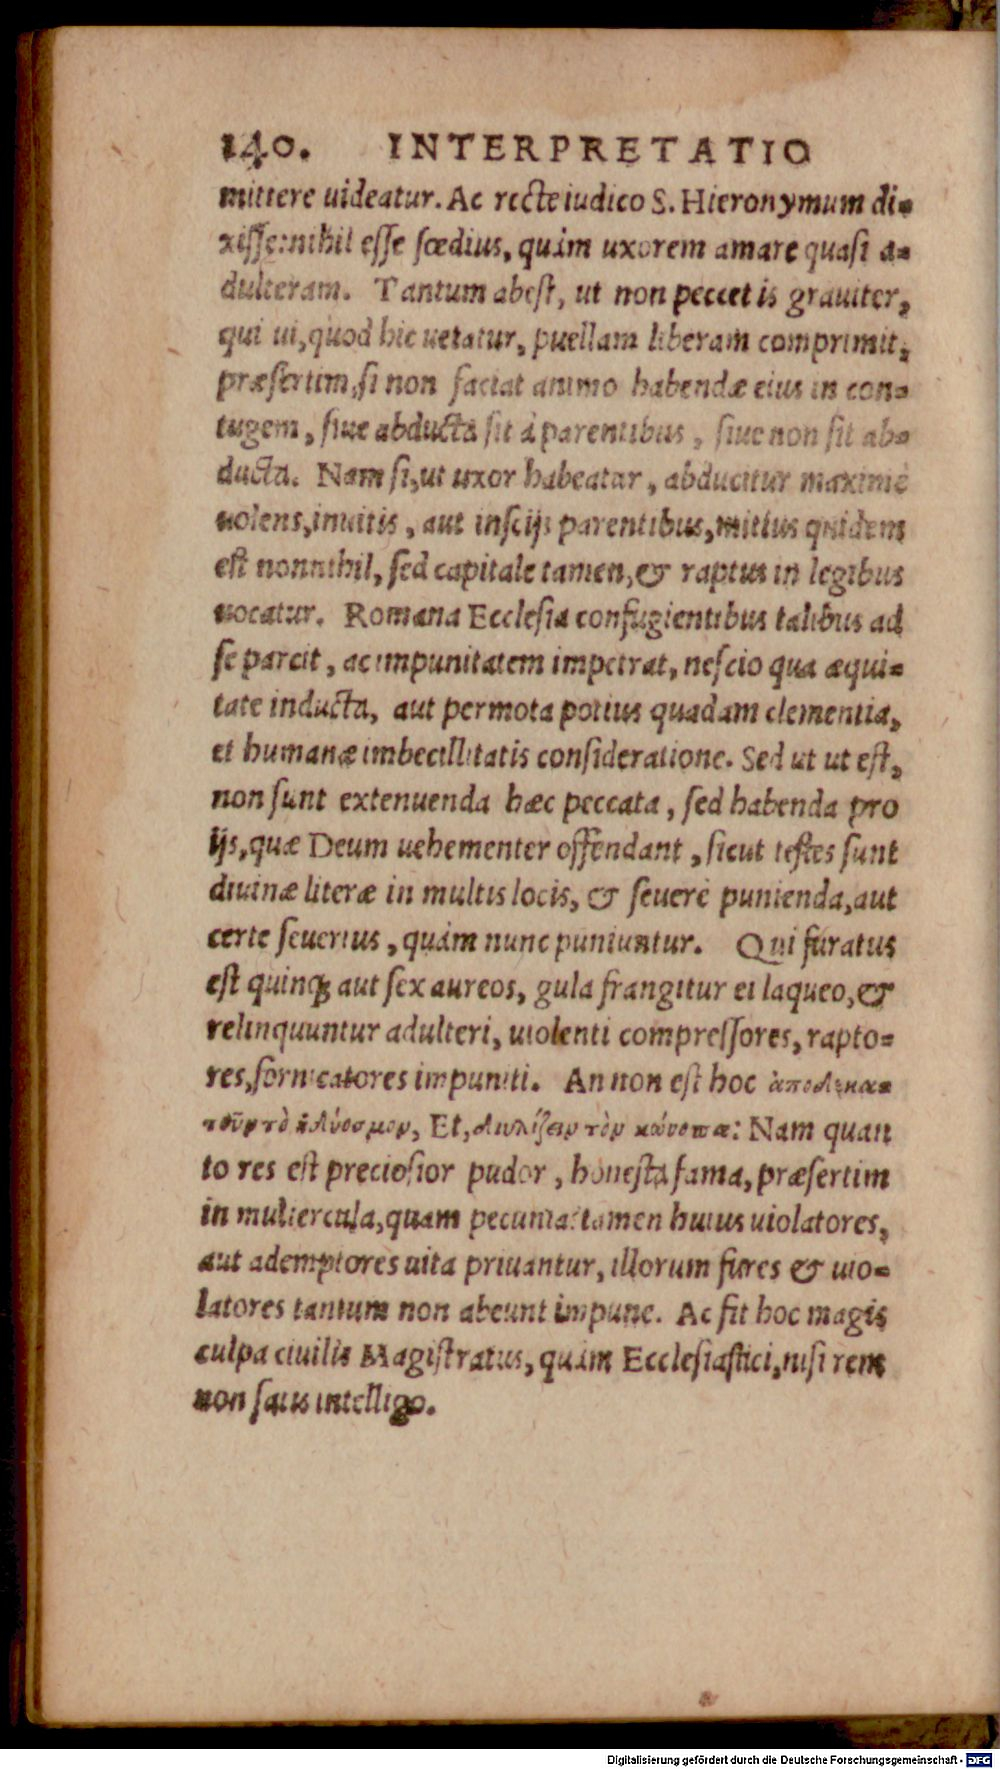 140. INTERPRETATIO
mittere uideatur. Ac recte iudico S. Hieronymum di-
xisse: nihil esse fœdius, quàm uxorem amare quasi a-
dulteram. Tantum abest, ut non peccet is grauiter,
qui ui, quod hic uetatur, puellam liberam comprimit,
præsertim, si non faciat animo habendæ eius in con-
iugem, siue abducta sit à parentibus, siue non sit ab-
ducta. Nam si, ut uxor habeatur, abducitur maximè
uolens, inuitis, aut inscijs parentibus, mitius quidem
est nonnihil, sed capitale tamen, & raptus in legibus
uocatur. Romana Ecclesia confugientibus talibus ad
se parcit, ac impunitatem impetrat, nescio qua æqui-
tate inducta, aut permota potius quadam clementia,
et humanæ imbecillitatis consideratione. Sed ut ut est,
non sunt extenuenda hæc peccata, sed habenda pro
ijs, quæ Deum uehementer offendant, sicut testes sunt
diuinæ literæ in multis locis, & seuerè punienda, aut
certe seuerius, quàm nunc puniuntur. Qui furatus
est quinq; aut sex aureos, gula frangitur ei laqueo, &
relinquuntur adulteri, uiolenti compressores, rapto-
res, fornicatores impuniti. An non est hoc ἀποδεκα-
τοῦν τὸ ἡδύοσμον, Et, διυλίζειν τὸν κώνωπα: Nam quan
to res est preciosior pudor, honesta fama, præsertim
in muliercula, quam pecunia: tamen huius uiolatores,
aut ademptores uita priuantur, illorum fures & uio-
latores tantum non abeunt impune. Ac fit hoc magis
culpa ciuilis Magistratus, quàm Ecclesiastici, nisi rem
non satis intelligo.
Digitalisierung gefördert durch die Deutsche Forschungsgemeinschaft - DFG